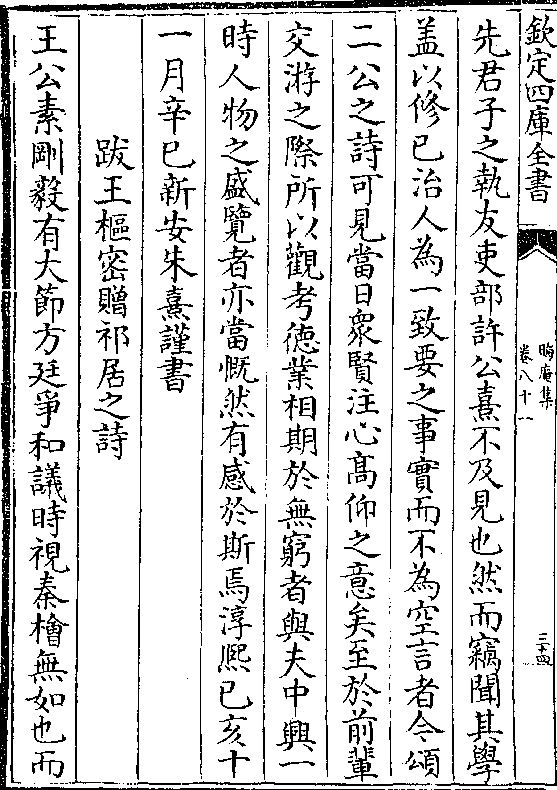 欽定四庫全書
晦庵集
卷八十一
三十四
先君子之執友吏部許公熹不及見也然而竊聞其學
盖以修已治人為一致要之事實而不為空言者今頌
二公之詩可見當日衆賢注心髙仰之意矣至於前輩
交游之際所以觀考德業相期於無窮者與夫中興一
時人物之盛覽者亦當慨然有感於斯焉淳熙已亥十
一月辛巳新安朱熹謹書
跋王樞密贈祁居之詩
王公素剛毅有大節方廷爭和議時視秦檜無如也而